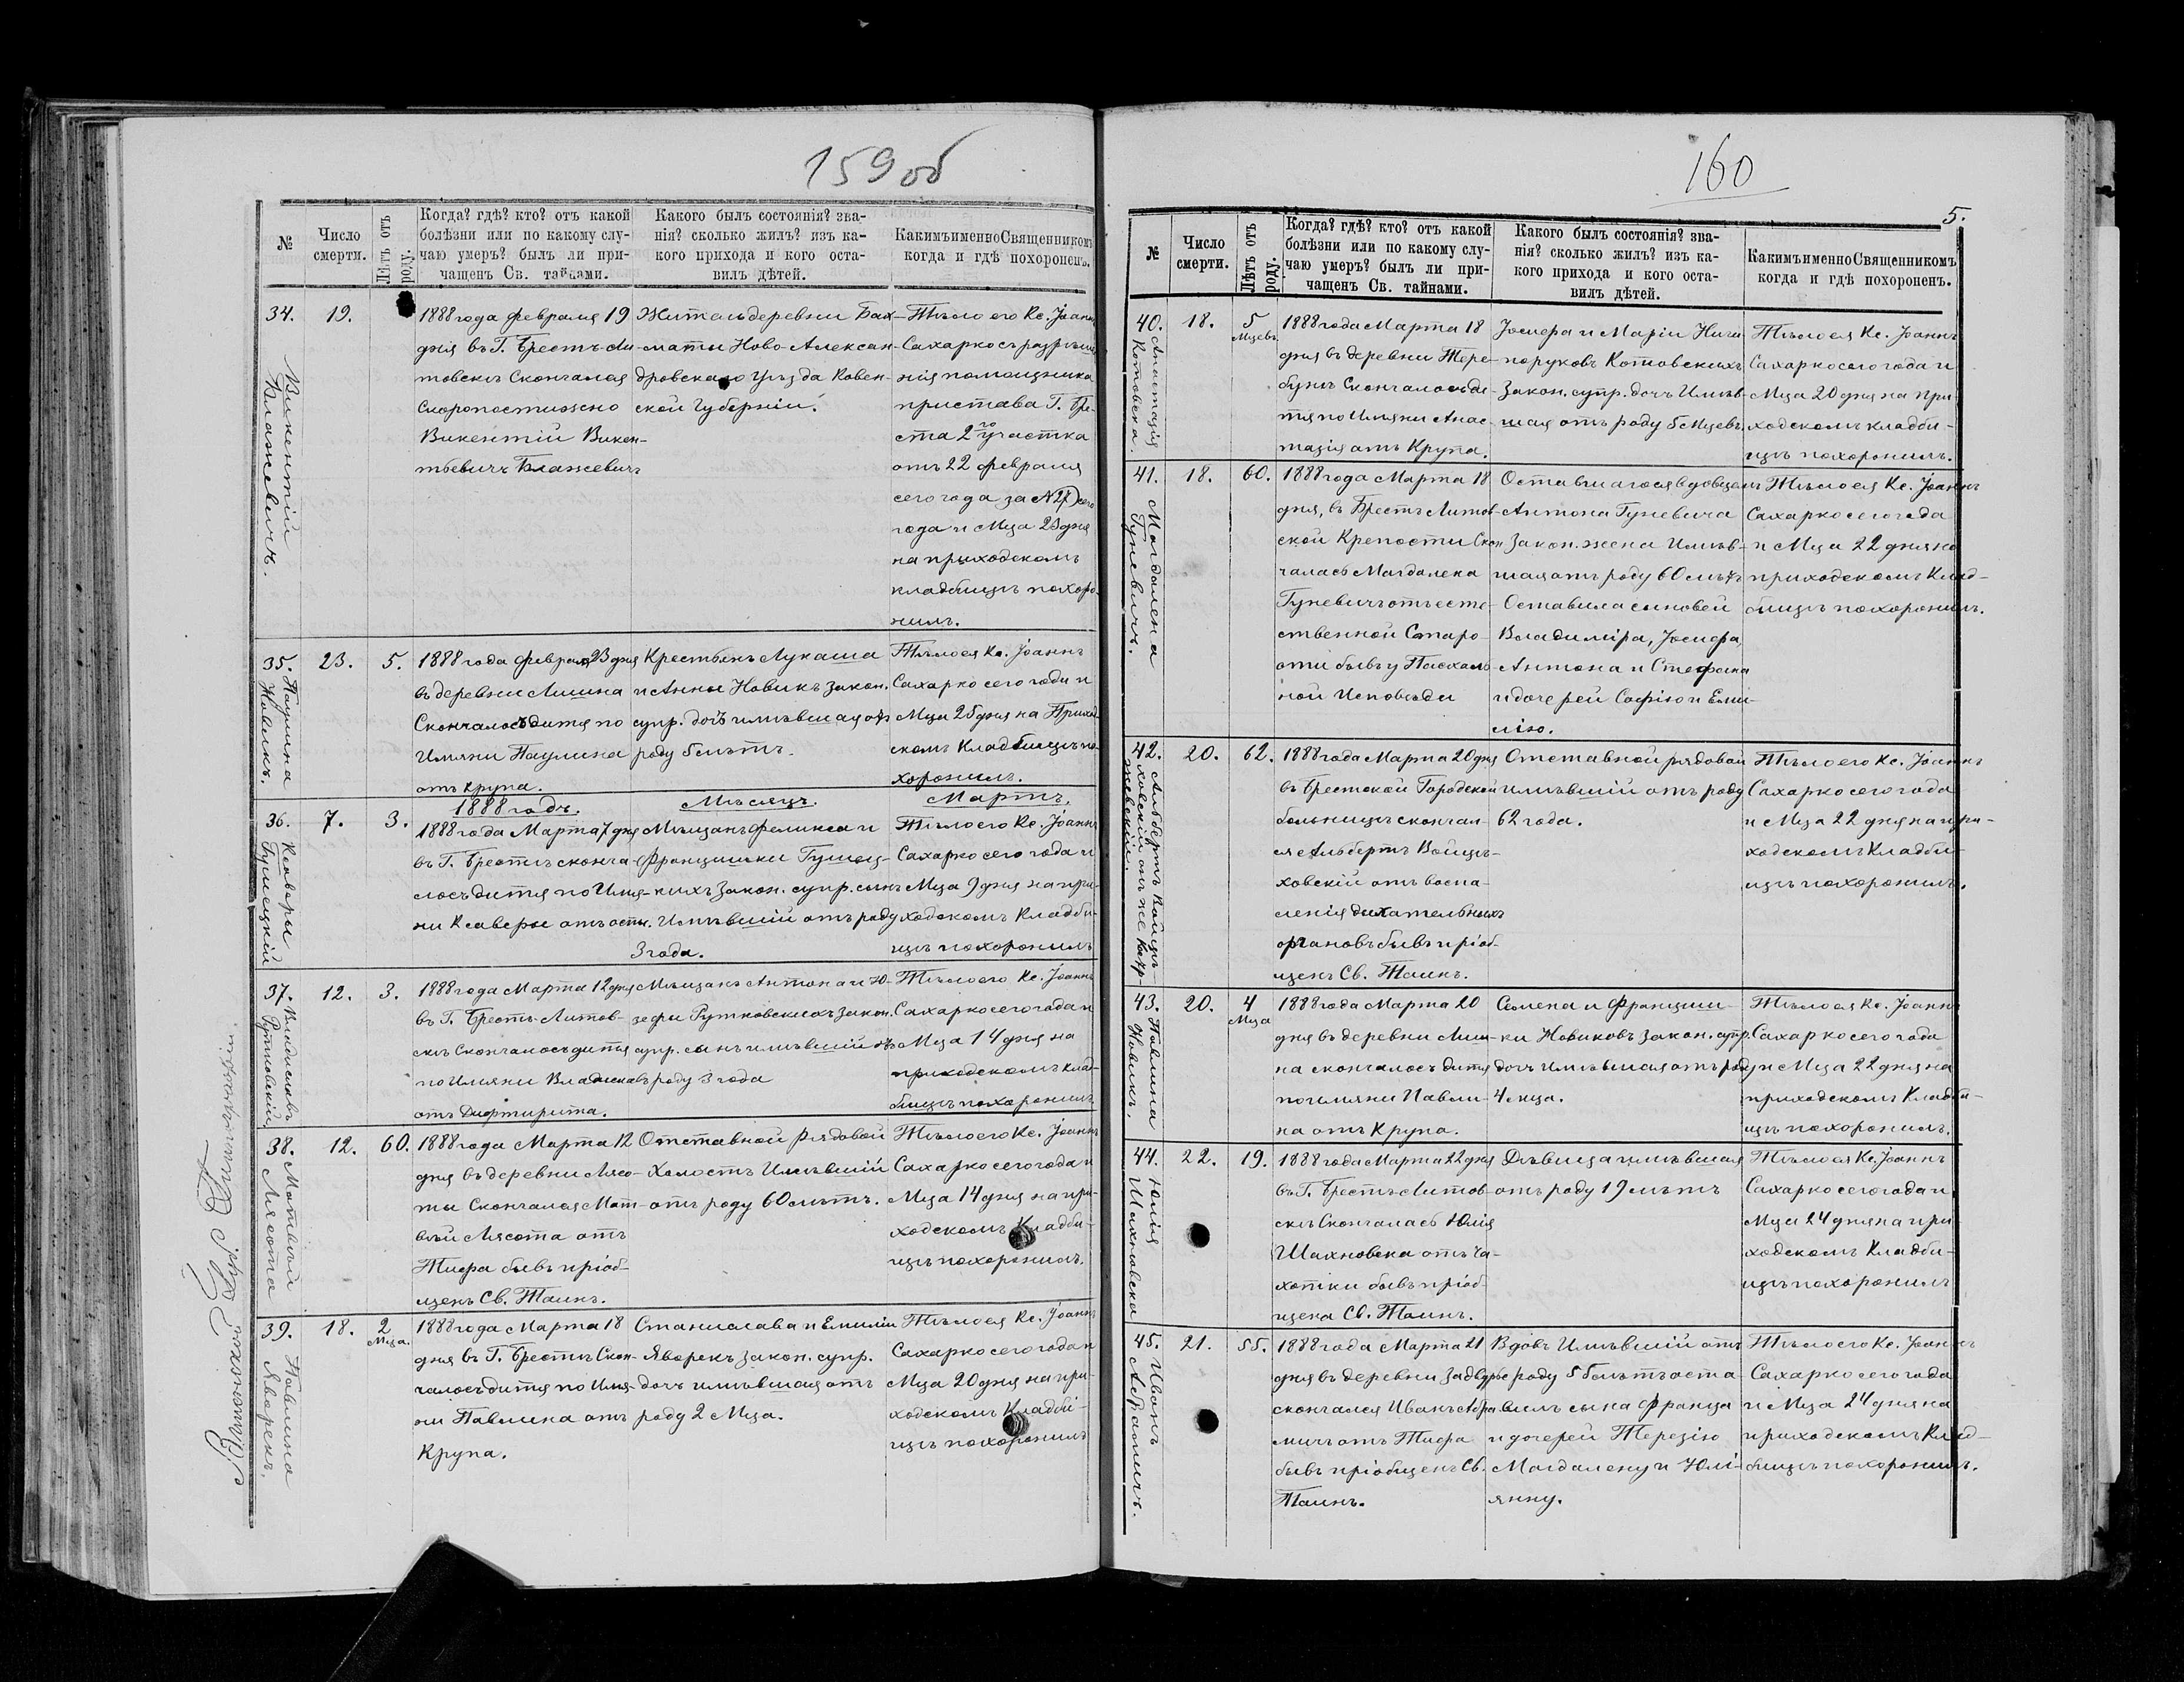 159 об
№
Число смерти.
Лѣтъ отъ роду.
Когда? гдѣ? кто? отъ какой болѣзни или по какому случаю умеръ? былъ ли причащенъ Св. тайнами.
Какого былъ состоянія? званія? сколько жилъ? изъ какого прихода и кого оставилъ дѣтей.
Какимъ именно Священникомъ когда и гдѣ похороненъ.
34.
Викентій
Блажевичъ.
19.
1888 года февраля 19
дня въ Г. Брестъ-Ли-
товскѣ Скончался
Скоропостижно
Викентій Викен-
тьевичъ Блажевичъ
Житель деревни Бах-
маты Ново-Алексан-
дровскаго Уѣзда Ковен-
ской Губерніи.
Тѣло его Кс. Іоаннъ
Сахарко съ разрѣше
нія помощника
пристава Г. Бре-
ста 2го участка
отъ 22 февраля
сего года за N 27 сего
года и Мца 23 дня
на приходскомъ
кладбищѣ похоро
нилъ.
35.
Паулина
Новикъ.
23.
5.
1888 года февраля 23 дня
въ деревни Лишна
Скончалось дитя по
Имяни Паулина
отъ крупа.
Крестьянъ Лукаша
и Анны Новикъ закон.
супр. дочь имѣвшая отъ
роду 5 лѣтъ.
Тѣло ея Кс. Іоаннъ
Сахарко сего года и
Мца 25 дня на Приход-
скомъ Кладбищѣ по-
хоронилъ.
1888 годъ.
Мѣсяцъ.
Мартъ.
36.
Ксаверы
Гумецкій
7.
3.
1888 года Марта 7 дня
въ Г. Брестѣ сконча-
лось дитя по Имя-
ни Ксаверы отъ оспы.
Мѣщанъ Феликса и
Францишки Гумец-
кихъ Закон. супр. сынъ
Имѣвшій отъ роду
3 года.
Тѣло его Кс. Іоаннъ
Сахарко сего года и
Мца 9 дня на при-
ходскомъ Кладби-
щѣ похоронилъ
37.
Владиславъ
Рутковскій.
12.
3.
1888 года Марта 12 дня
въ Г. Брестъ-Литов-
скѣ Скончалось дитя
по Имяни Владиславъ
отъ Дифтирита.
Мѣщанъ Антона и Ю-
зефы Рутковскихъ закон.
супр. сынъ имѣвшій отъ
роду 3 года
Тѣло его Кс. Іоаннъ
Сахарко сего года и
Мца 14 дня на
приходскомъ клад-
бищѣ похоронилъ
38.
Матвѣй
Лясота
12.
60.
1888 года Марта 12
дня въ деревни Лясо-
ты Скончался Мат-
вѣй Лясота отъ
Тифа бывъ пріоб-
щенъ Св. Таинъ.
Отставной рядовой
Холостъ Имѣвшій
отъ роду 60 лѣтъ.
Тѣло его Кс. Іоаннъ
Сахарко сего года и
Мца 14 дня на при-
ходскомъ Кладби-
щѣ похоронилъ.
39.
Павлина
Яворекъ.
18.
2
Мца.
1888 года Марта 18
дня въ Г. Брестѣ Скон-
чалось дитя по Имя-
ни Павлина отъ
Крупа.
Станислава и Емиліи
Яворекъ закон. супр.
дочь имѣвшая отъ
роду 2 Мца.
Тѣло ея Кс. Іоаннъ
Сахарко сего года и
Мца 20 дня на при-
ходскомъ Кладби-
щѣ похоронилъ
160
5.
№
Число смерти.
Лѣтъ отъ роду.
Когда? гдѣ? кто? отъ какой болѣзни или по какому случаю умеръ? былъ ли причащенъ Св. тайнами.
Какого былъ состоянія? званія? сколько жилъ? изъ какого прихода и кого оставилъ дѣтей.
Какимъ именно Священникомъ когда и гдѣ похороненъ.
40.
Анастазія
Котовска.
18.
5
Мцевъ
1888 года Марта 18
дня въ деревни Тере-
бунъ Скончалось ди-
тя по Имяни Анас-
тазія отъ Крупа.
Іосифа и Маріи Ничи-
поруковъ Котовскихъ
Закон. супр. дочь Имѣв-
шая отъ роду 5 Мцевъ.
Тѣло ея Кс. Іоаннъ
Сахарко сего года и
Мца 20 дня на при
ходскомъ кладби-
щѣ похоронилъ.
41.
Магдалена
Гуневичъ.
18.
60.
1888 года Марта 18
дня, въ Брестъ Литов-
ской Крепости Скон
чалась Магдалена
Гуневичъ отъ есте-
ственной Старо-
сти бывъ у Пасхаль-
ной Исповѣди
Оставшагося вдовцомъ
Антона Гуневича
Закон. жена Имѣв-
шая отъ роду 60 лѣтъ
Оставила сыновей
Владиміра, Іосифа,
Антона и Стефана
и дочерей Софію и Еми-
лію.
Тѣло ея Кс. Іоаннъ
Сахарко сего года
и Мца 22 дня на
приходскомъ Клад-
бищѣ похоронилъ.
42.
20.
62.
1888 года Марта 20 дня
въ Брестской Городской
больницѣ скончал-
ся Альбертъ Войцѣ-
ховскій отъ воспа-
ленія дыхательныхъ
органовъ бывъ пріоб-
щенъ Св. Таинъ.
Отставной рядовой
имѣвшій отъ роду
62 года.
Тѣло его Кс. Іоаннъ
Сахарко сего года
и Мца 22 дня на при-
ходскомъ Кладби-
щѣ похоронилъ.
43.
Павлина
Новикъ.
20.
4
Мца
1888 года Марта 20
дня въ деревни Лиш-
на скончалось дитя
по имяни Павли-
на отъ Крупа.
Семена и Францишки
Новиковъ закон. супр.
дочь имѣвшая отъ роду
4 мца.
Тѣло ея Кс. Іоаннъ
Сахарко сего года
и Мца 22 дня на
приходскомъ Кладби-
щѣ похоронилъ.
44.
Юлія
Шахновска
22.
19.
1888 года Марта 22 дня
въ Г. Брестъ-Литов-
скѣ Скончалась Юлія
Шахновска отъ Ча-
хотки бывъ пріоб-
щена Св. Таинъ.
Дѣвица имѣвшая
отъ роду 19 лѣтъ
Тѣло ея Кс. Іоаннъ
Сахарко сего года и
Мца 24 дня на при
ходскомъ Кладби-
щѣ похоронилъ
45.
Иванъ
Абрамичъ.
21.
55.
1888 года Марта 21
дня въ деревни Задворье
скончался Иванъ Абра-
мичъ отъ Тифа
бывъ пріобщенъ Св.
Таинъ.
Вдовъ Имѣвшій отъ
роду 55 лѣтъ оста-
вилъ сына Франца
и дочерей Терезію
Магдалену и Юлі-
янну.
Тѣло его Кс. Іоаннъ
Сахарко сего года
и Мца 24 дня на
приходскомъ Клад-
бищѣ похоронилъ.